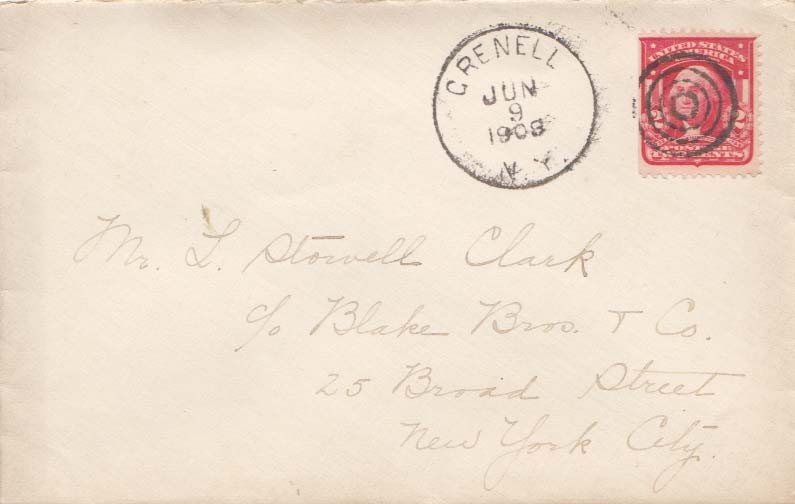 GRENELL
JUN
9
1908
N.Y.
UNITED STATES
OF AMERICA
2 2
POSTAGE
TWO CENTS
Mr. L. Stowell Clark
c/o Blake Bros. & Co.
25 Broad Street
New York City.